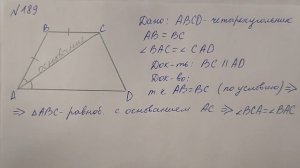 №189
Дано: ABCD- четырехугольник
AB = BC
∠BAC = ∠CAD
Док-ть: BC ∥ AD
Док-во:
т.к AB=BC (по условию) ⇒
⇒ △ABC- равноб. с основанием AC ⇒ ∠BCA=∠BAC
B
C
основание
A
D